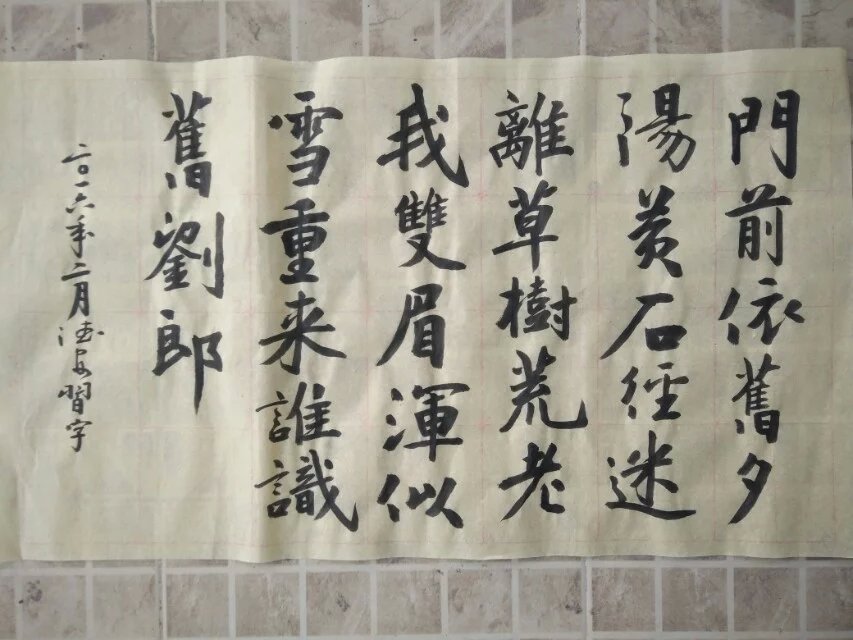 門前依舊夕
陽黃石徑迷
離草樹荒老
我雙眉渾似
雪重来誰識
舊劉郎
二〇一六年二月習字